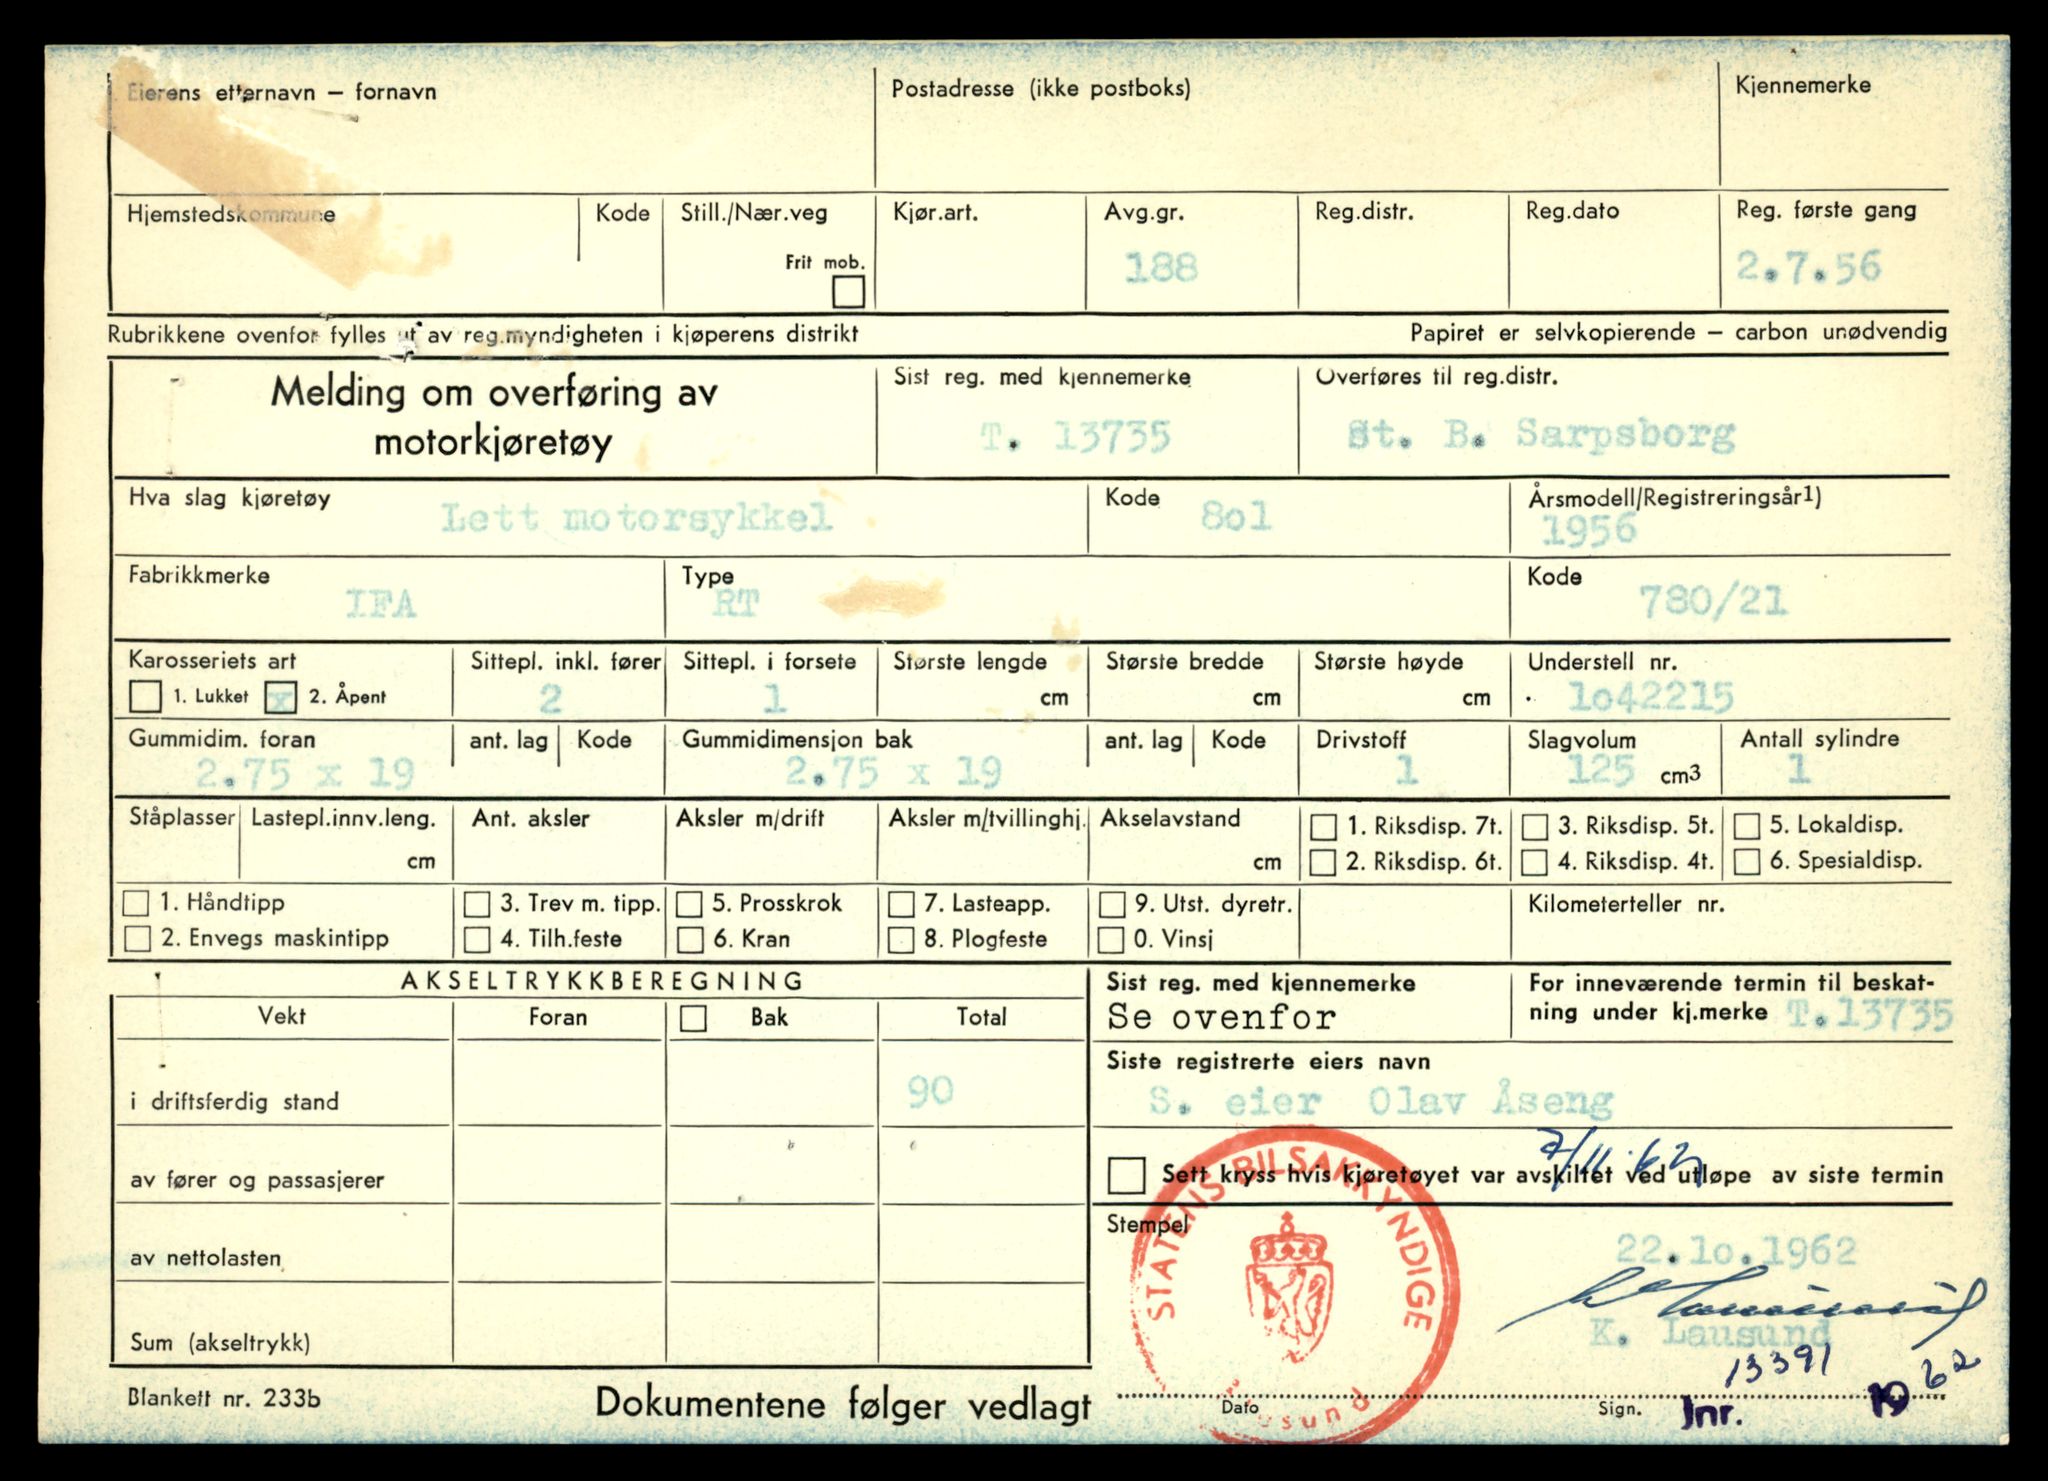 Eierens etternavn – fornavn Postadresse (ikke postboks) Kjennemerke
Hjemstedskommune Kode Still./Nær.veg Kjør.art. Avg.gr. Reg.distr. Reg.dato Reg. første gang
Frit mob. 188 2.7.56
Rubrikkene ovenfor fylles ut av reg.myndigheten i kjøperens distrikt Papiret er selvkopierende – carbon unødvendig
Melding om overføring av Sist reg. med kjennemerke Overføres til reg.distr.
motorkjøretøy T. 13735 St. B. Sarpsborg
Hva slag kjøretøy Lett motorsykkel Kode 8o1 Årsmodell/Registreringsår1)
1956
Fabrikkmerke Type Kode
IFA RT 780/21
Karosseriets art Sittepl. inkl. fører Sittepl. i forsete Største lengde Største bredde Største høyde Understell nr.
1. Lukket x 2. Åpent 2 1 cm cm cm 1o42215
Gummidim. foran ant. lag Kode Gummidimensjon bak ant. lag Kode Drivstoff Slagvolum Antall sylindre
2.75 x 19 2.75 x 19 1 125 cm3 1
Ståplasser Lastepl.innv.leng. Ant. aksler Aksler m/drift Aksler m/tvillinghj. Akselavstand 1. Riksdisp. 7t. 3. Riksdisp. 5t. 5. Lokaldisp.
cm cm 2. Riksdisp. 6t. 4. Riksdisp. 4t. 6. Spesialdisp.
1. Håndtipp 3. Trev m. tipp. 5. Prosskrok 7. Lasteapp. 9. Utst. dyretr. Kilometerteller nr.
2. Envegs maskintipp 4. Tilh.feste 6. Kran 8. Plogfeste 0. Vinsj
AKSELTRYKKBEREGNING Sist reg. med kjennemerke For inneværende termin til beskat-
Vekt Foran Bak Total Se ovenfor ning under kj.merke T.13735
Siste registrerte eiers navn
i driftsferdig stand 90 S. eier Olav Åseng
7/11.62
av fører og passasjerer Sett kryss hvis kjøretøyet var avskiltet ved utløpe av siste termin
STATENS BILSAKKYNDIGE
Stempel
av nettolasten 22.1o.1962
Sum (akseltrykk) K. Lausund
13391 62
Blankett nr. 233b Dokumentene følger vedlagt Dato Sign. Jnr. 19